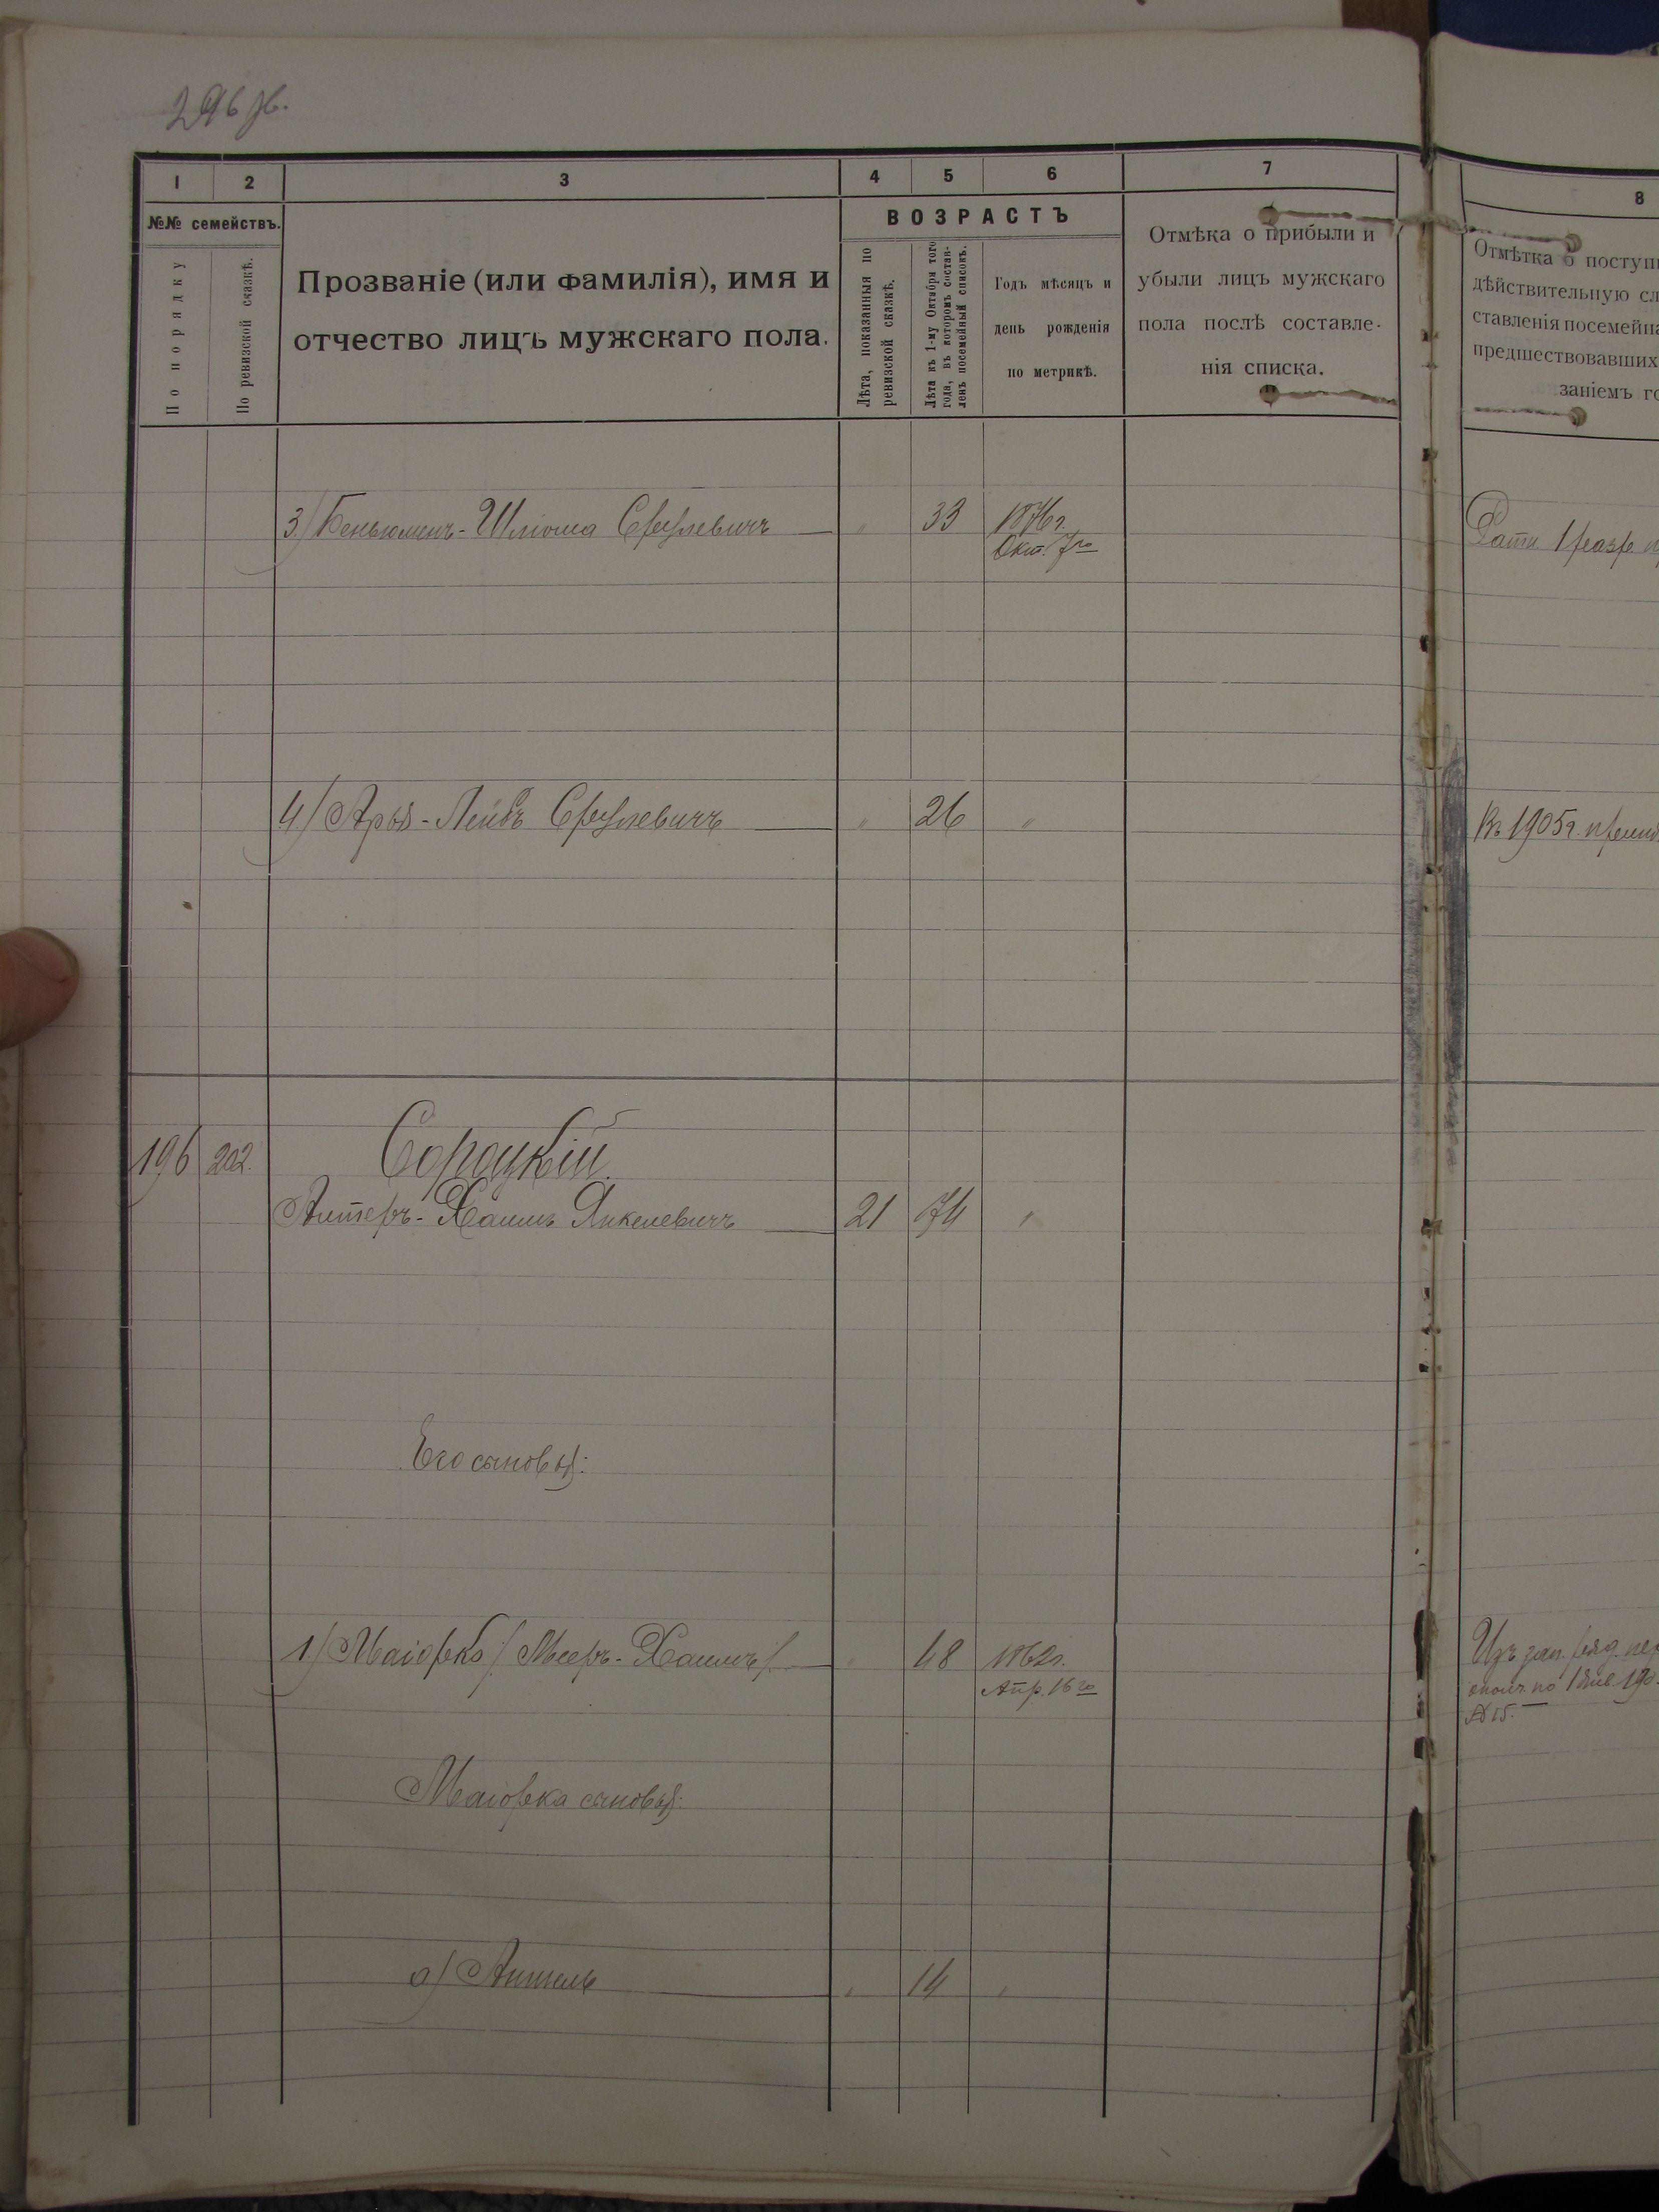 296 об.
1 2 3 4 5 6 7
№№ семействъ.
По порядку
По ревизской сказкѣ.
Прозваніе (или фамилія), имя и
отчество лицъ мужскаго пола.
ВОЗРАСТЪ
Лѣта, показанныя по
ревизской сказкѣ.
Лѣта къ 1-му Октября того
года, въ которомъ состав-
ленъ посемейный списокъ.
Годъ мѣсяцъ и
день рожденія
по метрикѣ.
Отмѣка о прибыли и
убыли лицъ мужскаго
пола послѣ составле-
нія списка.
8
Отмѣтка о поступ
дѣйствительную сл
ставленія посемейна
предшествовавших
заніемъ го
3) Беньюминъ-Шлiома Срулевичъ " 33 1876 г.
Окт. 7го
Рати 1 разр.
4) Арья-Лейбъ Срулевичъ " 26 "
Въ 1905 г.
196 202. Сороцкій
Антеръ-Хаимъ Янкелевичъ 21 74 "
Его сыновья:
1) Маіорко /Мееръ-Хаимъ/ " 48 1862 г.
Апр. 16го
Изъ зап. ряд.
по 1 Янв. 190
№ 15.
Маіорка сыновья:
а) Аншель " 14 "